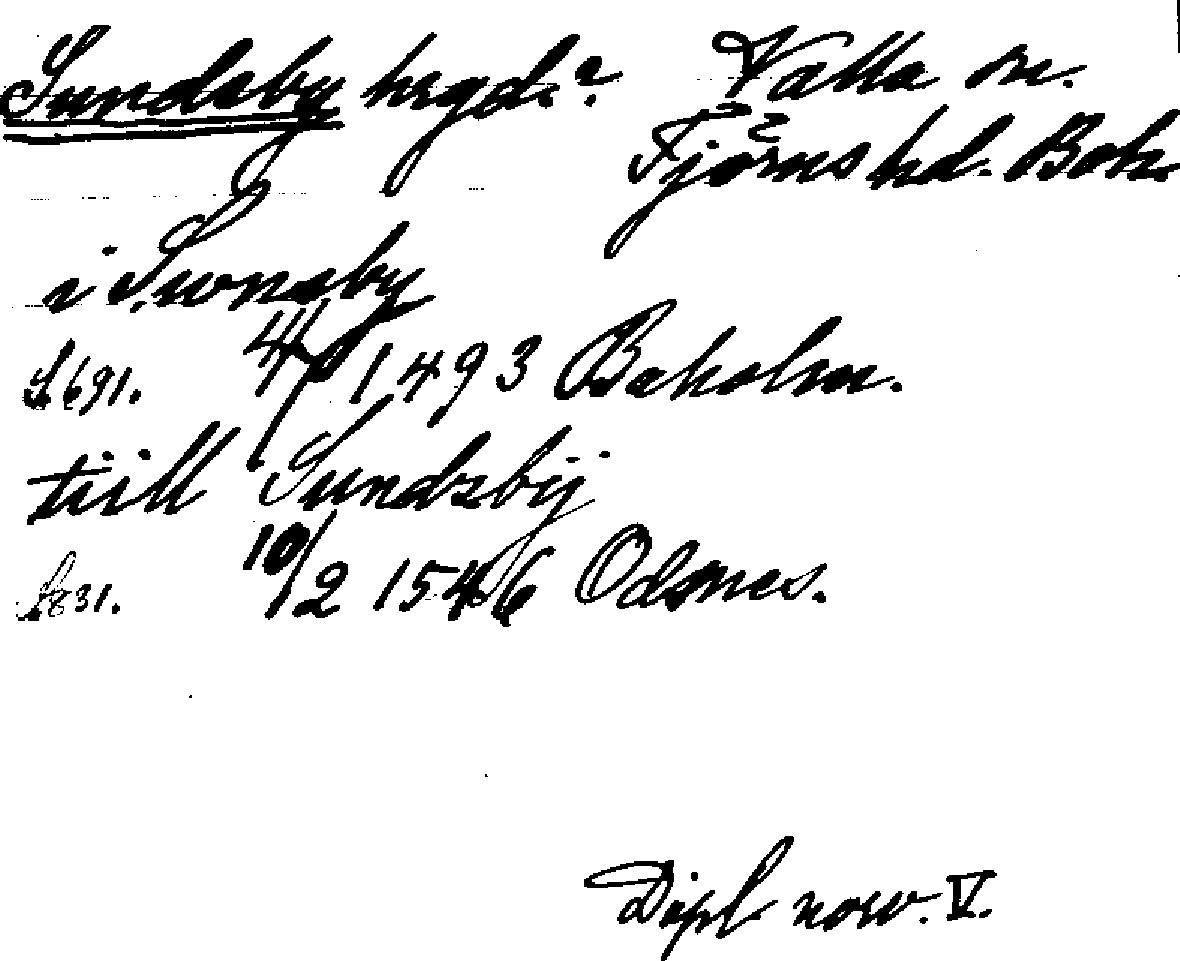 Sundsby hrgd.? Valla sn.
Tjörns hd. Boh.
i Swnsby
S. 691. 4/9 1493 Baholm.
tiill Sundzbÿ
S. 831. 10/2 1546 Odsnes.
Dipl norv. V.